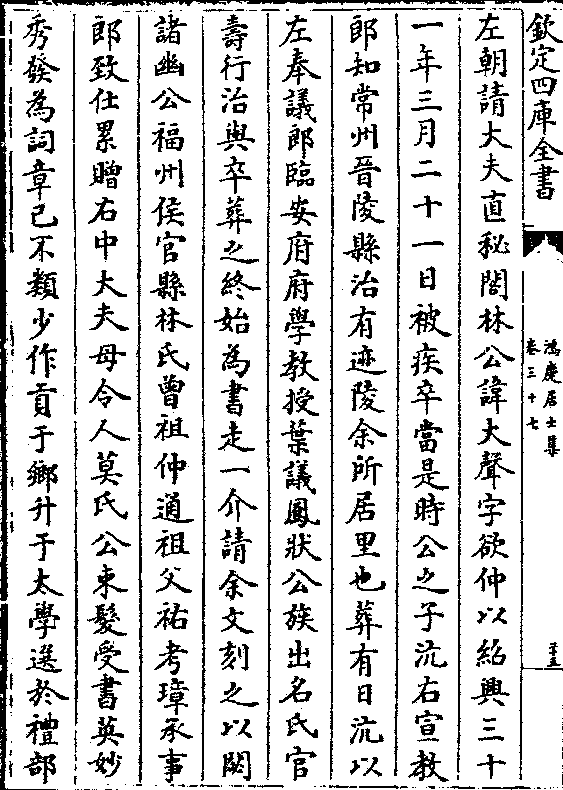 欽定四庫全書
鴻慶居士集
卷三十七
左朝請大夫直秘閣林公諱大聲字欲仲以紹興三十
一年三月二十一日被疾卒當是時公之子沆右宣教
郎知常州晉陵縣治有迹陵余所居里也葬有日沆以
左奉議郎臨安府府學教授葉議鳳狀公族出名氏官
壽行治與卒葬之終始為書走一介請余文刻之以閟
諸幽公福州侯官縣林氏曾祖仲通祖父祐考璋承事
郎致仕累贈右中大夫母令人莫氏公束髮受書英妙
秀發為詞章已不類少作貢于鄉升于太學選於禮部